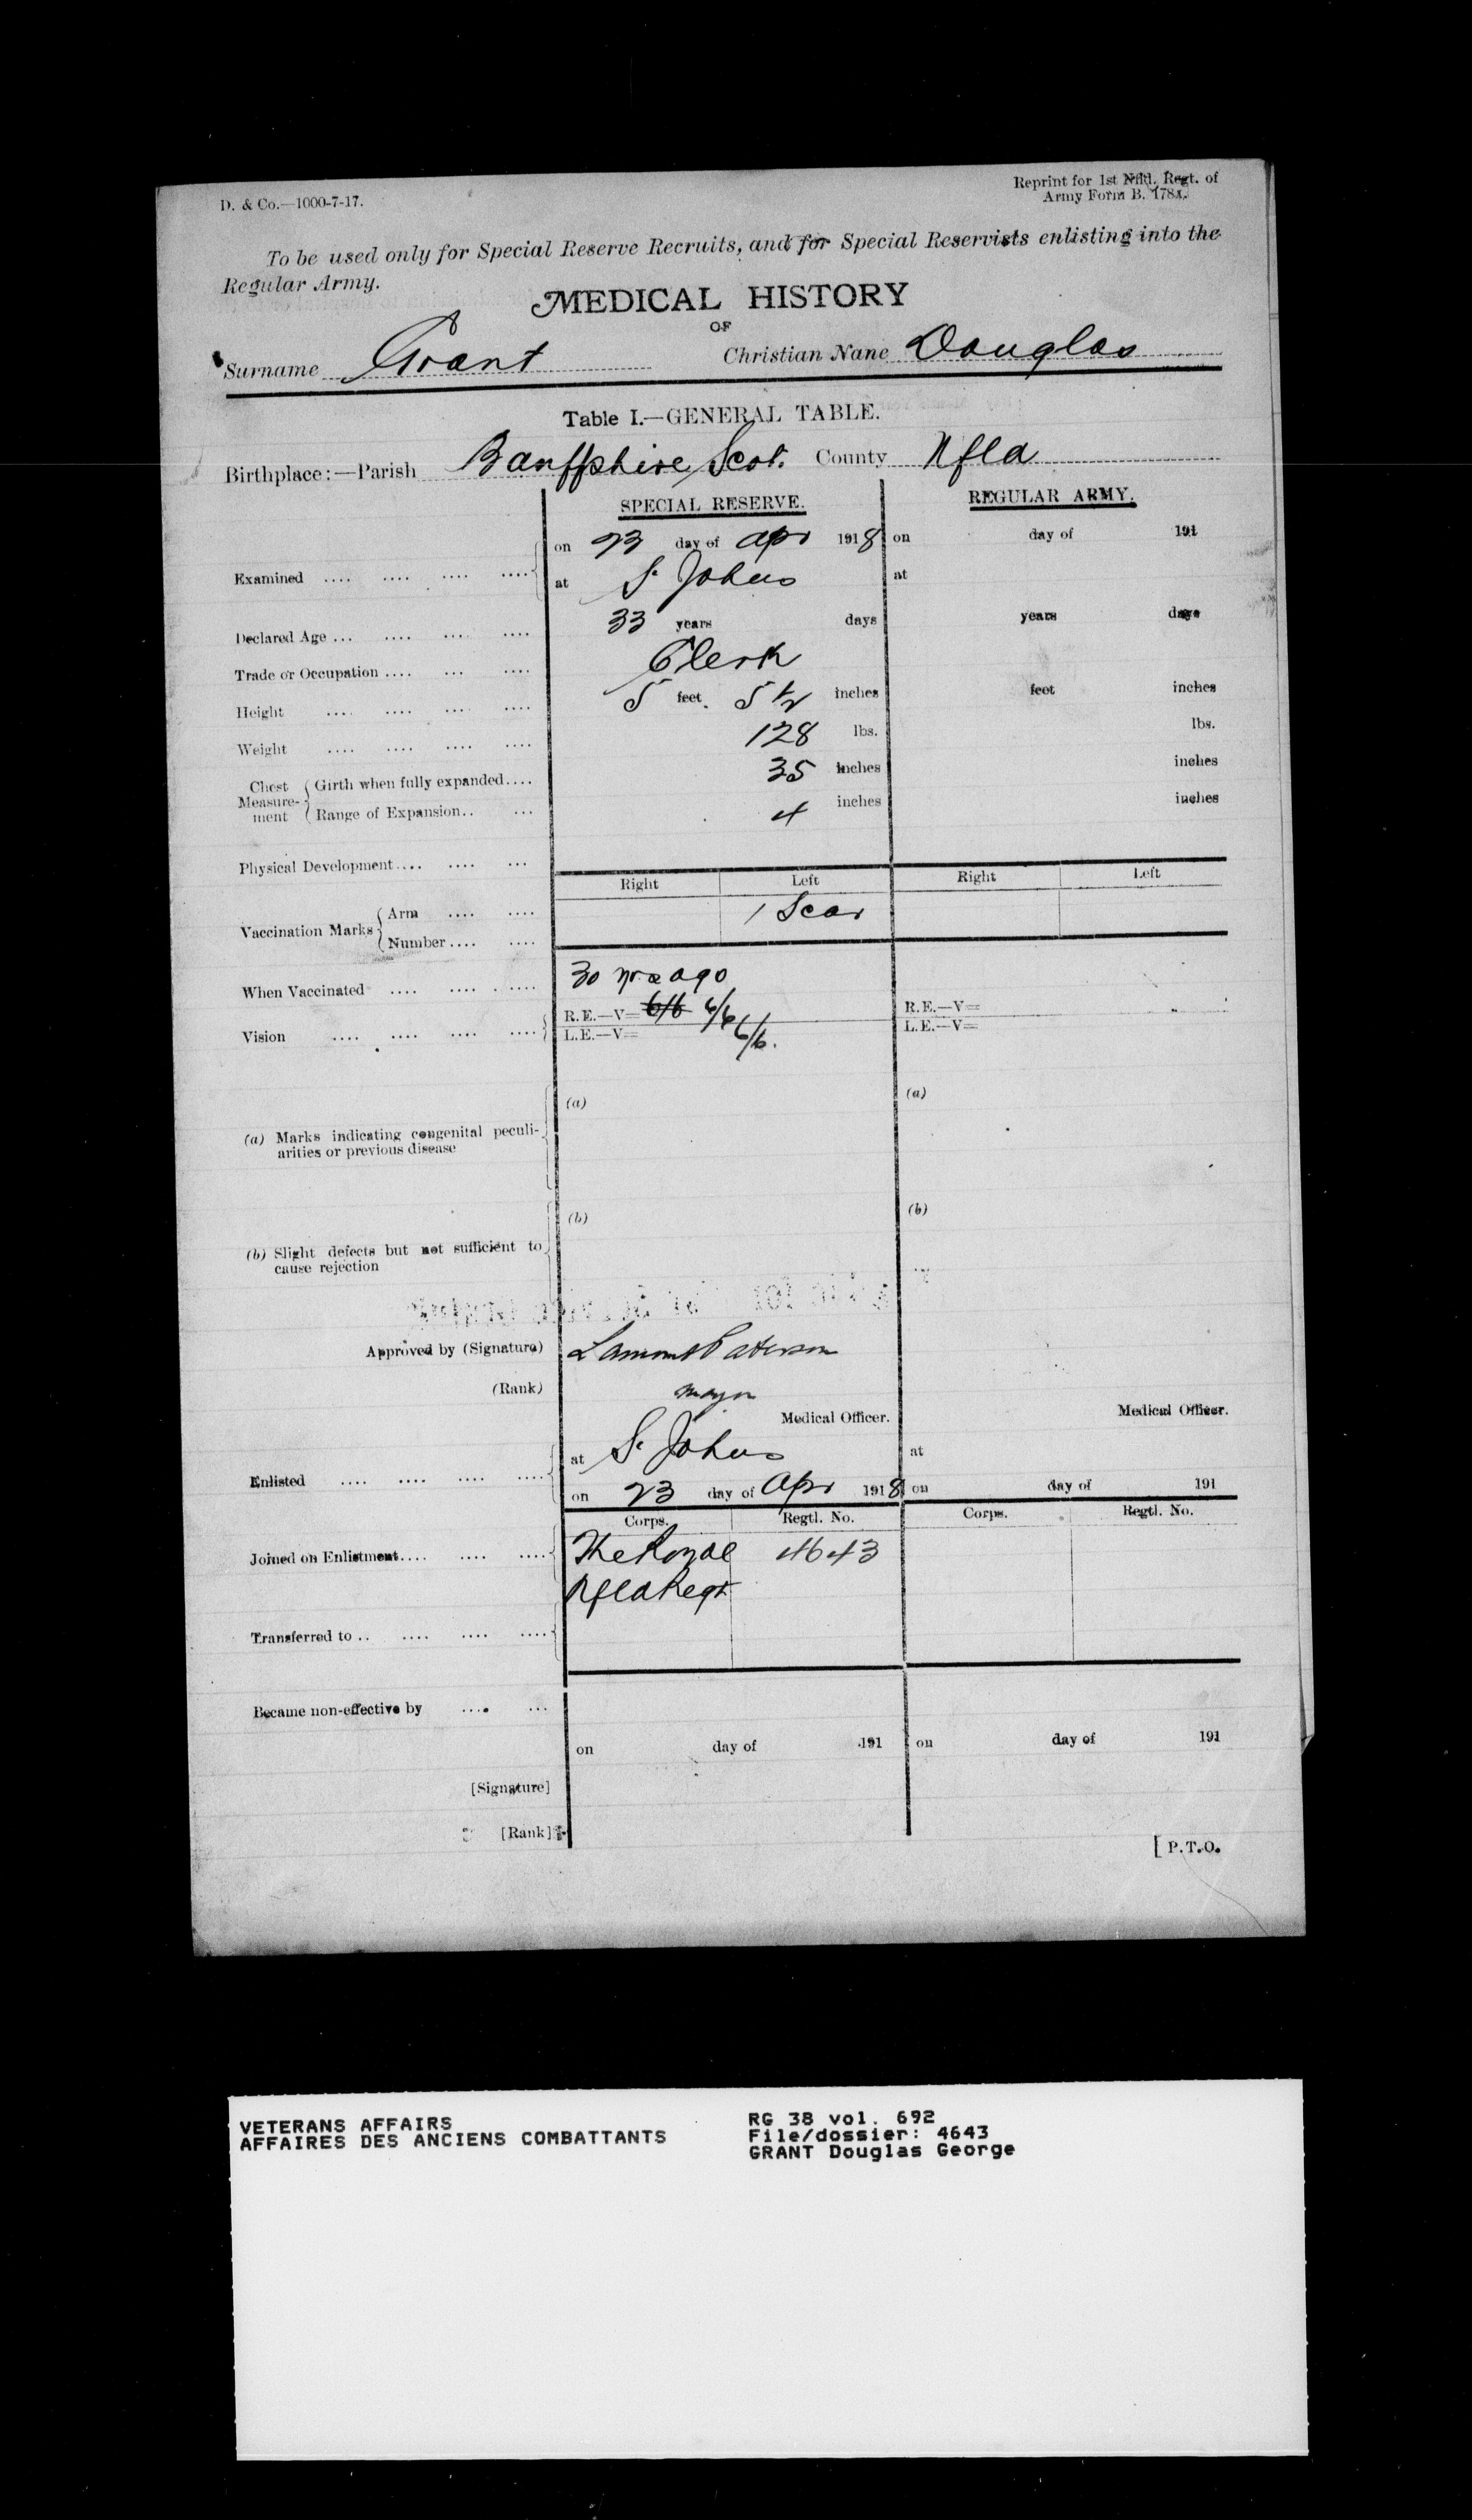 D. & Co.—1000-7-17.
Reprint for 1st Nfld. Regt. of
Army Form B. 178A.
To be used only for Special Reserve Recruits, and for Special Reservists enlisting into the
Regular Army.
MEDICAL HISTORY
OF
Surname Grant Christian Name Douglas
Table I.—GENERAL TABLE.
Birthplace:—Parish Banffshire Scot. County Nfld
SPECIAL RESERVE. REGULAR ARMY.
on 23 day of Apr 1918 on day of 191
Examined .... .... .... .... at St. Johns at
Declared Age ... .... .... .... 33 years days years days
Trade or Occupation .... ... .... Clerk
Height .... .... .... .... 5 feet 5 1/2 inches feet inches
Weight .... .... .... .... 128 lbs. lbs.
Chest Measurement Girth when fully expanded.... 35 inches inches
Range of Expansion.. ... 4 inches inches
Physical Development.... .... ...
Right Left Right Left
Vaccination Marks Arm .... .... 1 Scar
Number .... ....
When Vaccinated .... .... .... 30 yrs ago
Vision .... .... .... .... R.E.—V= 6/6 6/6 R.E.—V=
L.E.—V= 6/6. L.E.—V=
(a) (a)
(a) Marks indicating congenital peculi-
arities or previous disease
(b) (b)
(b) Slight defects but not sufficient to
cause rejection
Approved by (Signature) Lamont Paterson
(Rank) Major
Medical Officer. Medical Officer.
at St. Johns at
Enlisted .... .... .... ....
on 23 day of Apr 1918 on day of 191
Corps. Regtl. No. Corps. Regtl. No.
Joined on Enlistment.... .... .... The Royal 4643
Nfld Regt
Transferred to .. .... .... ....
Became non-effective by .... ...
on day of 191 on day of 191
[Signature]
[Rank]
[P.T.O.
VETERANS AFFAIRS
AFFAIRES DES ANCIENS COMBATTANTS
RG 38 vol. 692
File/dossier: 4643
GRANT Douglas George